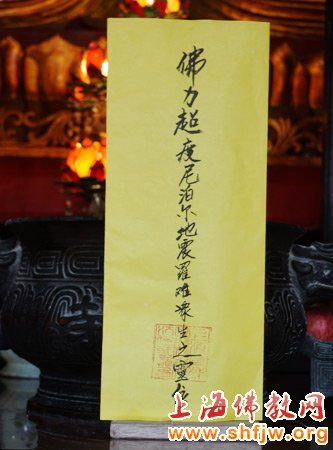 佛力超度尼泊尔地震羅难衆生之靈位
上海佛教网
www.shfjw.org